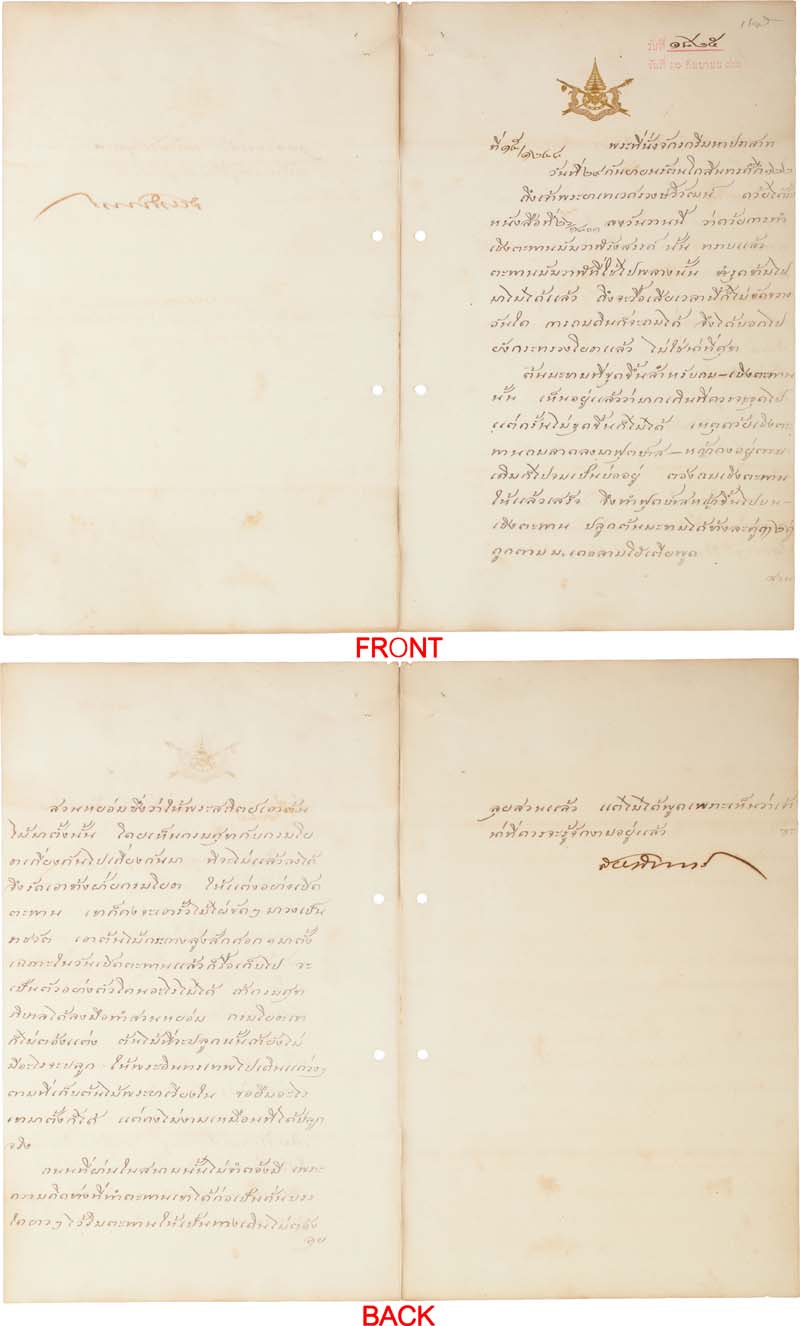 วันที่ ๒๐ กันยายน
พระที่นั่งจักรกรีมหาปราสาท
วันที่ ๒๙ กันยายน รัตนโกสินทรศก
ถึงเจ้าพระยาเทเวศรวงษ์วิวัฒน์ ด้วยได้รับ
หนังสือที่ ลงวันวานนี้ ว่าด้วยการทำ
เชิงตะพานมัฆวาฬรังสรรค์ นั้น ทราบแล้ว
ตะพานมัฆวาฬที่ใช้ไปพลางนั้น ชำรุดข้ามไป
มาไม่ได้แล้ว ถึงจะรื้อเสียเวลานี้ก็ไม่ขัดขวาง
อันใด การถมดินก็จะถมได้ ซึ่งได้บอกไป
ยังกระทรวงโยธาแล้ว ไม่ใช่น่าที่ศุข
ต้นมะขามที่ขุดขึ้นสำหรับถมเชิงตะพาน
นั้น เห็นอยู่แล้วว่ามากเกินที่ควรจะขุดไป
แต่ครั้นไม่ขุดขึ้นก็ไม่ได้ เหตุด้วยเชิงตะ
พานถมลาดลงมาฟุตบาท หญ้าคงอยู่ตาม
เดิมก็ไปจมเป็นบ่ออยู่ ต้องถมเชิงตะพาน
ให้แล้วเสร็จ จึงทำฟุตบาทหญ้าขึ้นไปบน
เชิงตะพาน ปลูกต้นมะขามได้ข้างละคู่
สวน
สวนหย่อมซึ่งว่าให้พระสถิตย์เอาต้น
ไม้มาตั้งนั้น โดยเห็นกรมศุขกับกรมโย
ธาเกี่ยงกันไปเกี่ยงกันมา ที่จะไม่แล้วลงได้
จึงรัดเอาข้างฝ่ายกรมโยธา ให้แต่งอย่างเปิด
ตะพาน เขาก็คงจะเอารั้วไม้ไผ่ขัดๆ มาวงเป็น
ราชวัต เอาต้นไม้กระถางสูงสักศอก ๑ มาตั้ง
เฉภาะในวันเปิดตะพานแล้วก็รื้อเก็บไป จะ
เป็นตัวอย่างตัวโคนอะไรไม่ได้ ถ้ากรมศุข
าภิบาลได้ลงมือทำสวนหย่อม กรมโยธาเขา
ก็ไม่ต้องแต่ง ต้นไม้ที่จะปลูกนั้นถ้ายังไม่
มีอะไรจะปลูก ให้พระอินทรเทพไปเดินแถวๆ
ตามที่เก็บต้นไม้พระยาเวียงใน ขอยืมอะไร
เขามาตั้งก็ได้ แต่คงไม่งามเหมือนที่ได้ปลูก
จริง
ถนนที่ผ่านในสนามนั้นไม่จำต้องมี เพราะ
ความคิดช่างที่ทำตะพานเขาได้ก่อเป็นคันบรร
ไดยาวๆ ไว้ริมตะพานให้เป็นทางเดินไม่ต้อง
ลุย
ลุยสวนแล้ว แต่ไม่ได้พูดเพราะเห็นว่าเจ้า
น่าที่ควรจะรู้จักงามอยู่แล้ว
สยามินทร์
FRONT
BACK